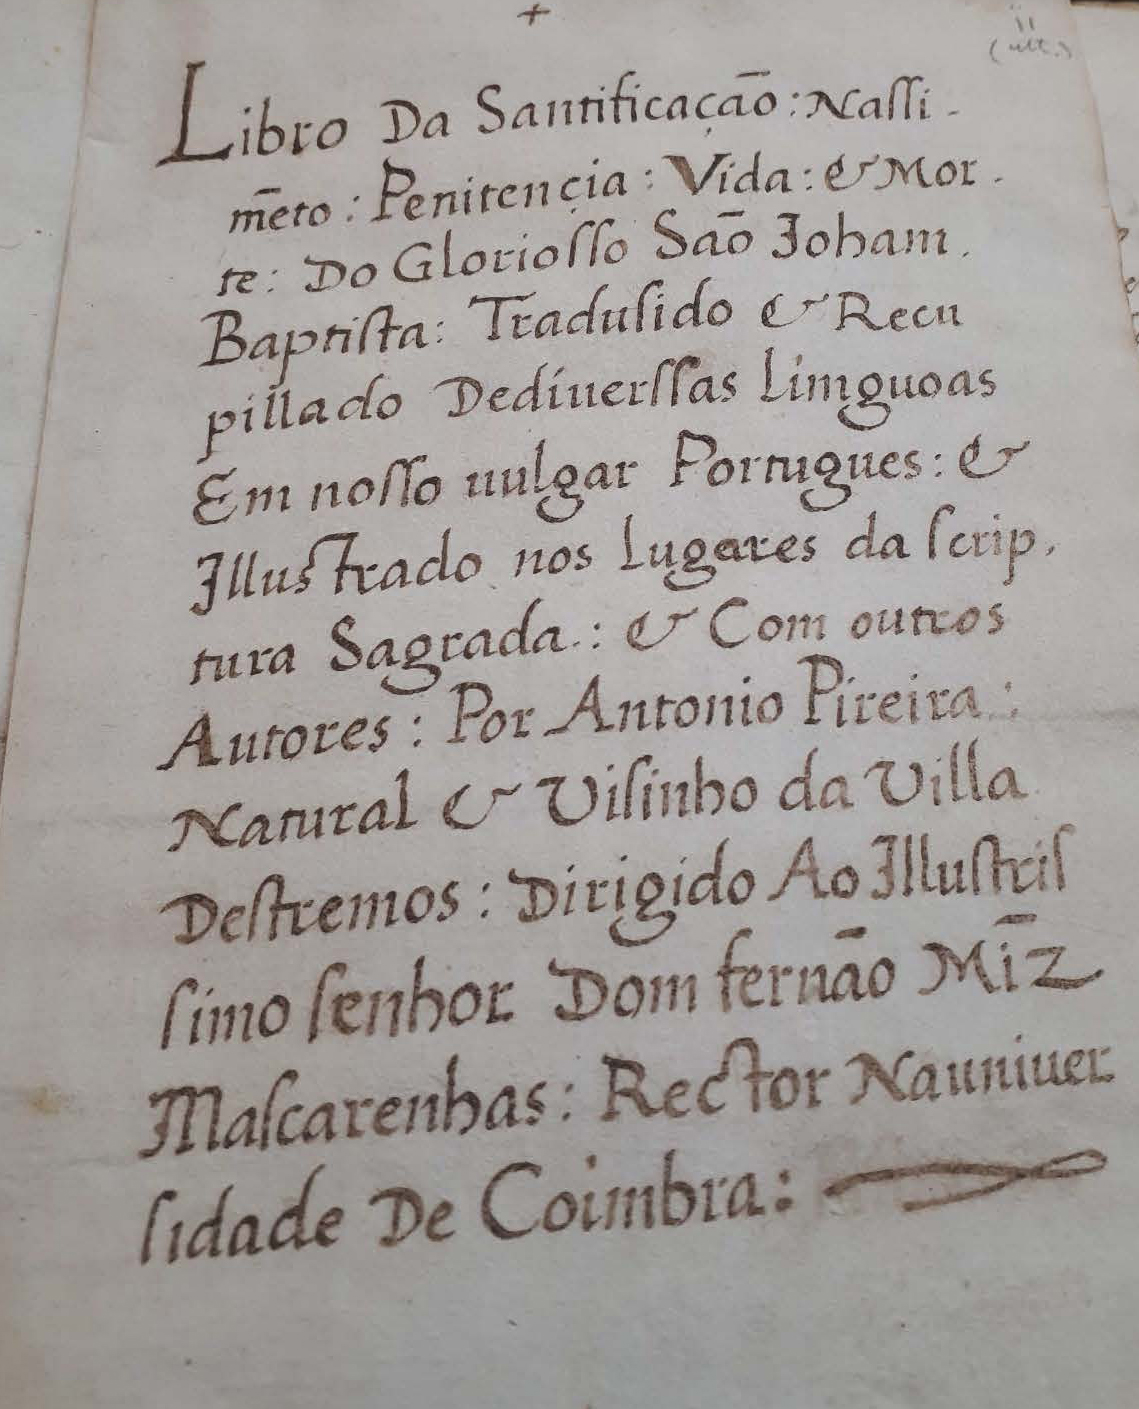 +
Libro Da Santificaçaõ : Naſſi -
mēto : Penitençia : Vida : & Mor .
te : Do Glorioſſo Saõ Joham .
Baptiſta : Traduſido & Recu
pillado Dediuerſſas Limguoas
Em noſſo uulgar Portugues : &
Illuſtrado nos Lugares da ſcrip .
tura Sagrada . : & Com outros
Autores : Por Antonio Pireira :
Natural & Viſinho da Villa
Deſtremos : Dirigido Ao Illuſtriſ
ſimo ſenhor Dom fernāo Mīz
Maſcarenhas : Rector Nauniuer
ſidade De Coimbra :